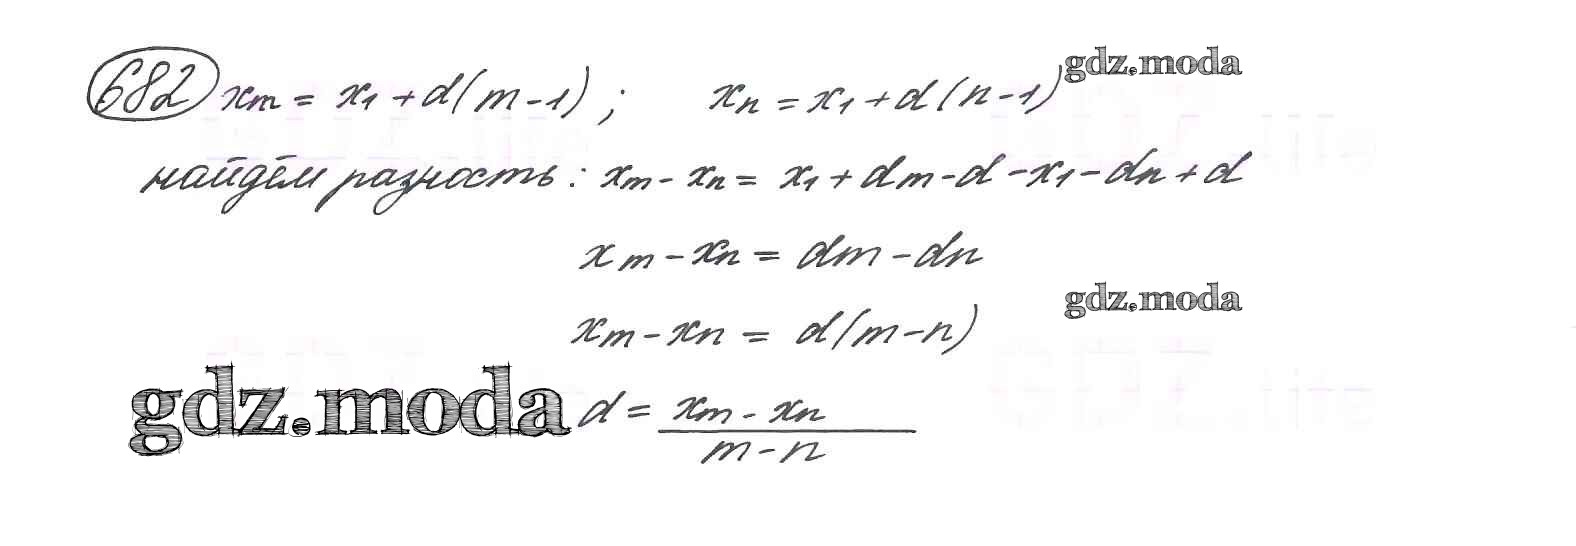 682 xₘ = x₁ + d(m-1) ; xₙ = x₁ + d(n-1) gdz.moda
найдём разность: xₘ - xₙ = x₁ + dm - d - x₁ - dn + d
xₘ - xₙ = dm - dn
gdz.moda
xₘ - xₙ = d(m-n)
gdz.moda d = xₘ - xₙ
m - n